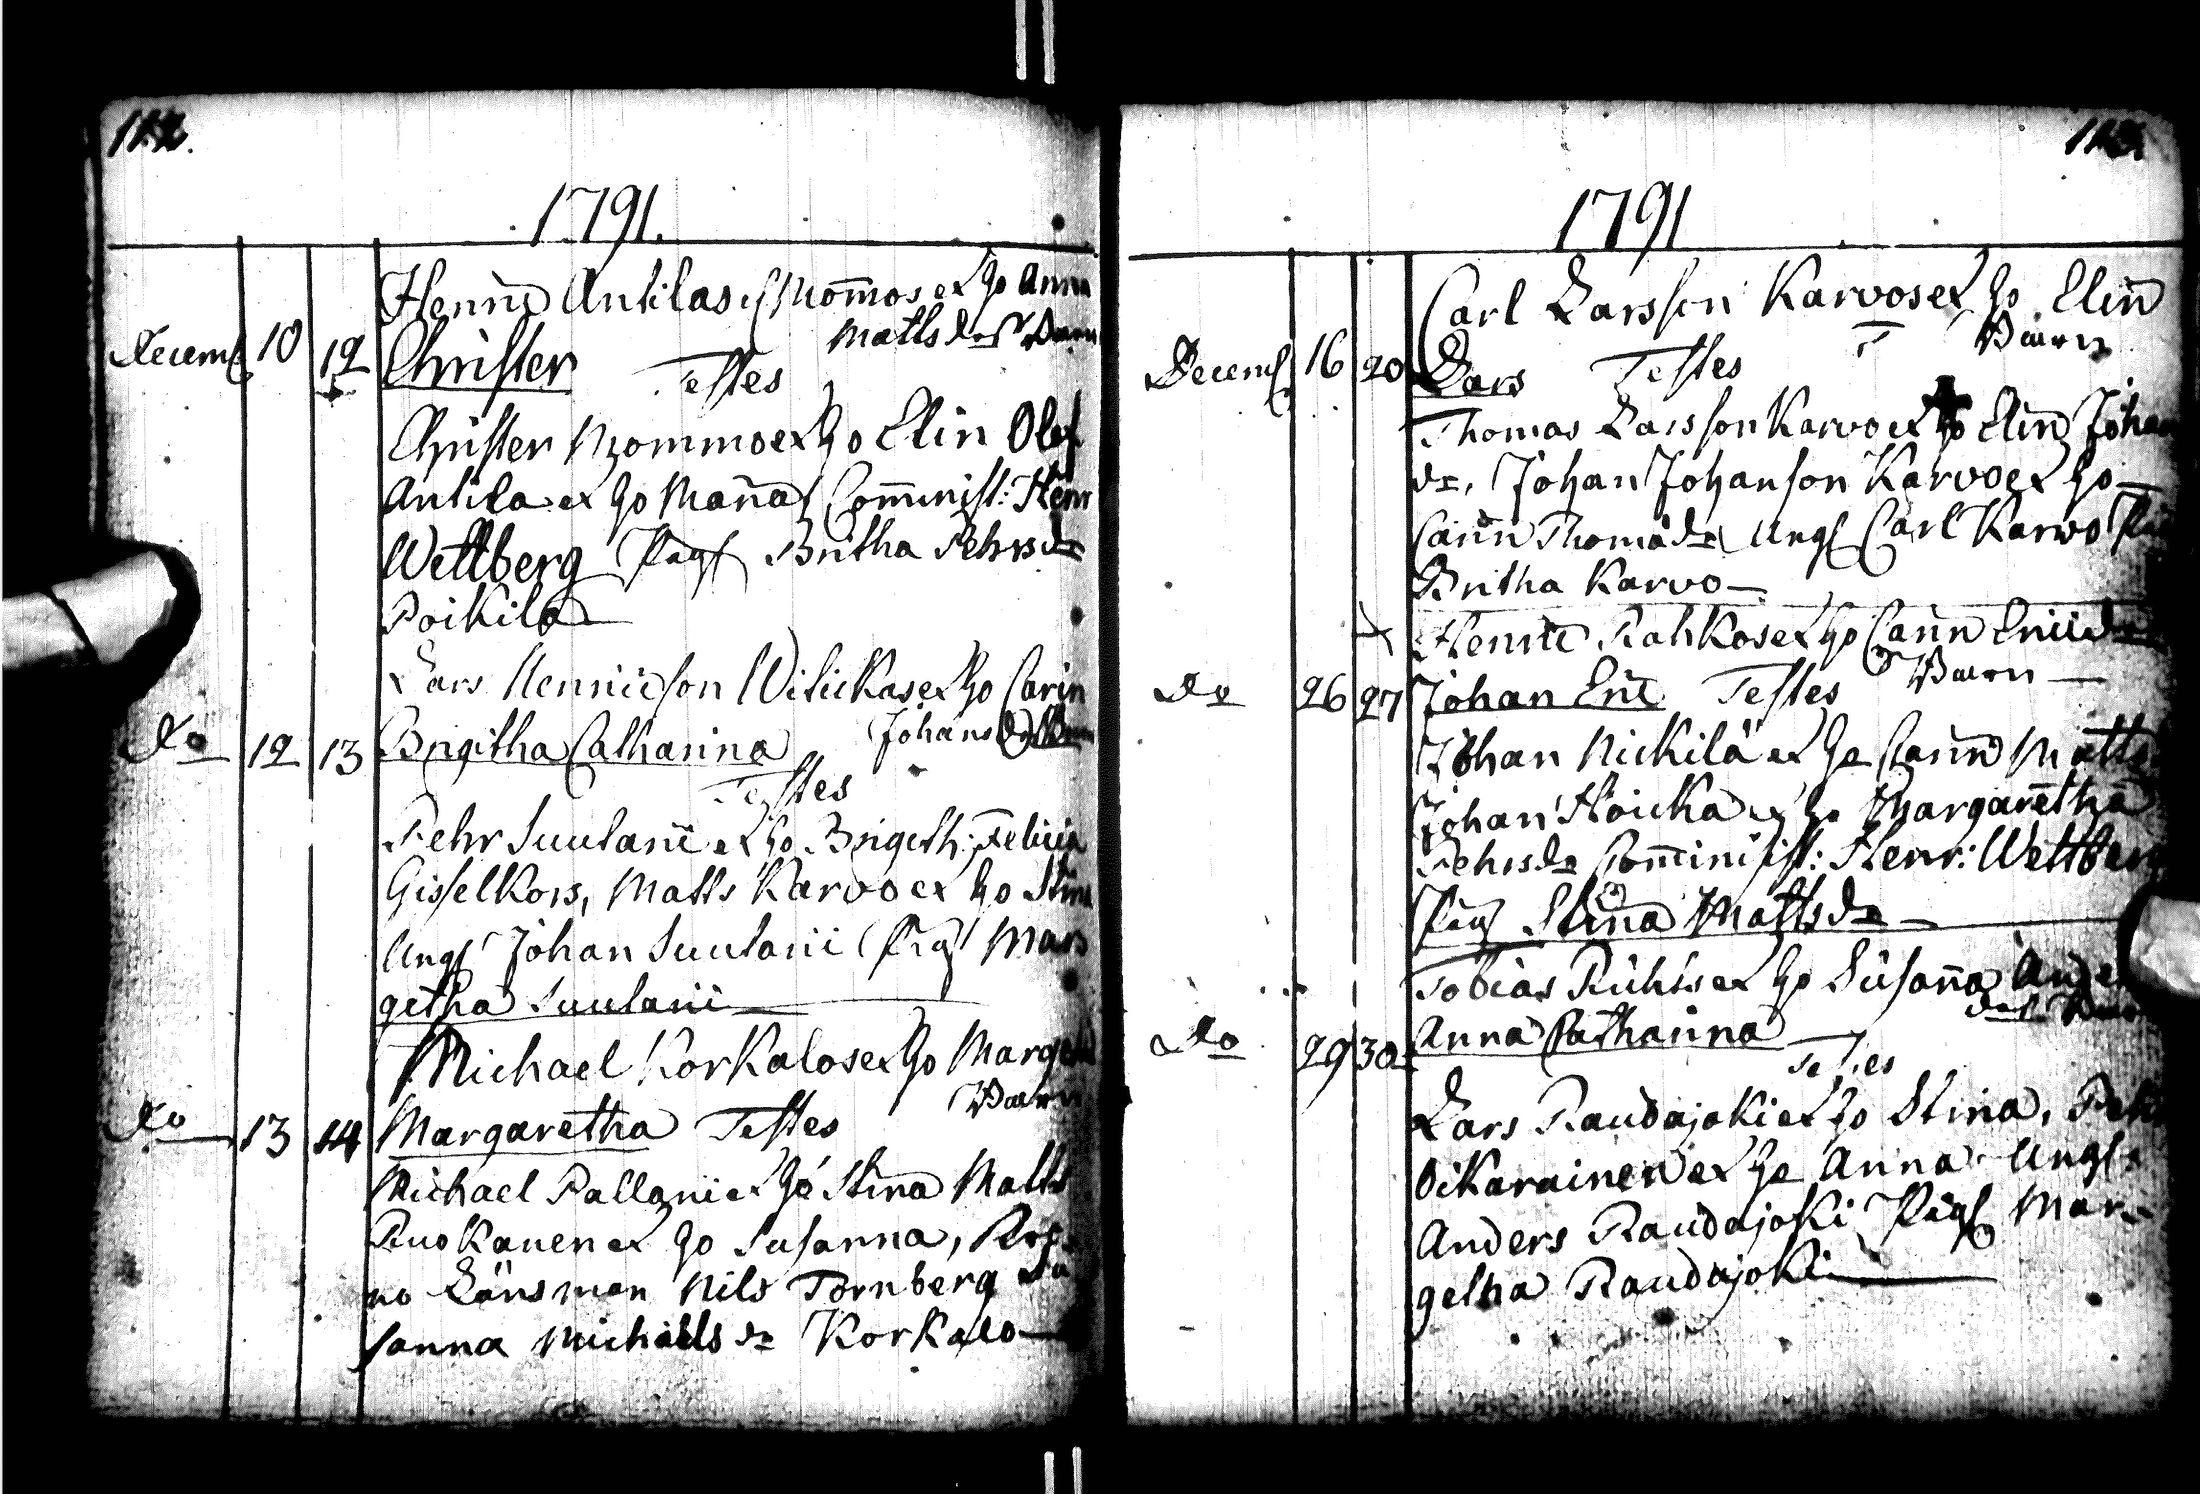 112.
1791.
Henric Antilas l. Mommos et Ho Anna
Matts dr Barn
Decemb 10 12 Christer Testes
Christer Mommo et Ho Elin Olof
Antila et Ho Maria Comminist: Henr
Wettberg Pig Britha Pehrs dr
Poikila
Lars Henricson Wilickas et Ho Carin
Johans dr Barn
Do 12 13 Brigitha Catharina
Testes
Pehr Suutarii et Ho Brigith: Felicia
Gisselkors, Matts Karvo et Ho Stina
Ung Johan Suutarii Pig Mar
getha Suutarii
Michael Korkalos et Ho Marget
Barn
Do 13 14 Margaretha Testes
Michael Pallari et Ho Stina Matts
Ruokanen et Ho Susanna, Kro
no Länsman Nils Tornberg Su
sanna Michaels dr Korkalo
113.
1791
Carl Larsson Karvos et Ho Elin
Barn
Decemb 16 20 Lars Testes
Thomas Larsson Karvo et Ho Elin Johan
dr, Johan Johanson Karvo et Ho
Carin Thomæ dr Ung Carl Karvo Pig
Britha Karvo
Henric Rahkos et Ho Carin Erics dr
Barn
Do 26 27 Johan Eric Testes
Johan Nickilä et Ho Carin Matts
Johan Hoicka et Ho Margaretha
Pehrs dr Comminist: Henr: Wettberg
Pig Stina Matts dr
Tobias Ruhts et Ho Susanna Anders
dr Barn
Do 29 30 Anna Catharina
Testes
Lars Raudajoki et Ho Stina, Pehr
Oikarainen et Ho Anna Ung
Anders Raudajoki Pig Mar
getha Raudajoki